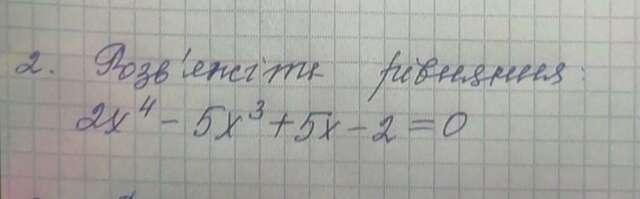 2. Розв'яжіть рівняння:
2x⁴ - 5x³ + 5x - 2 = 0